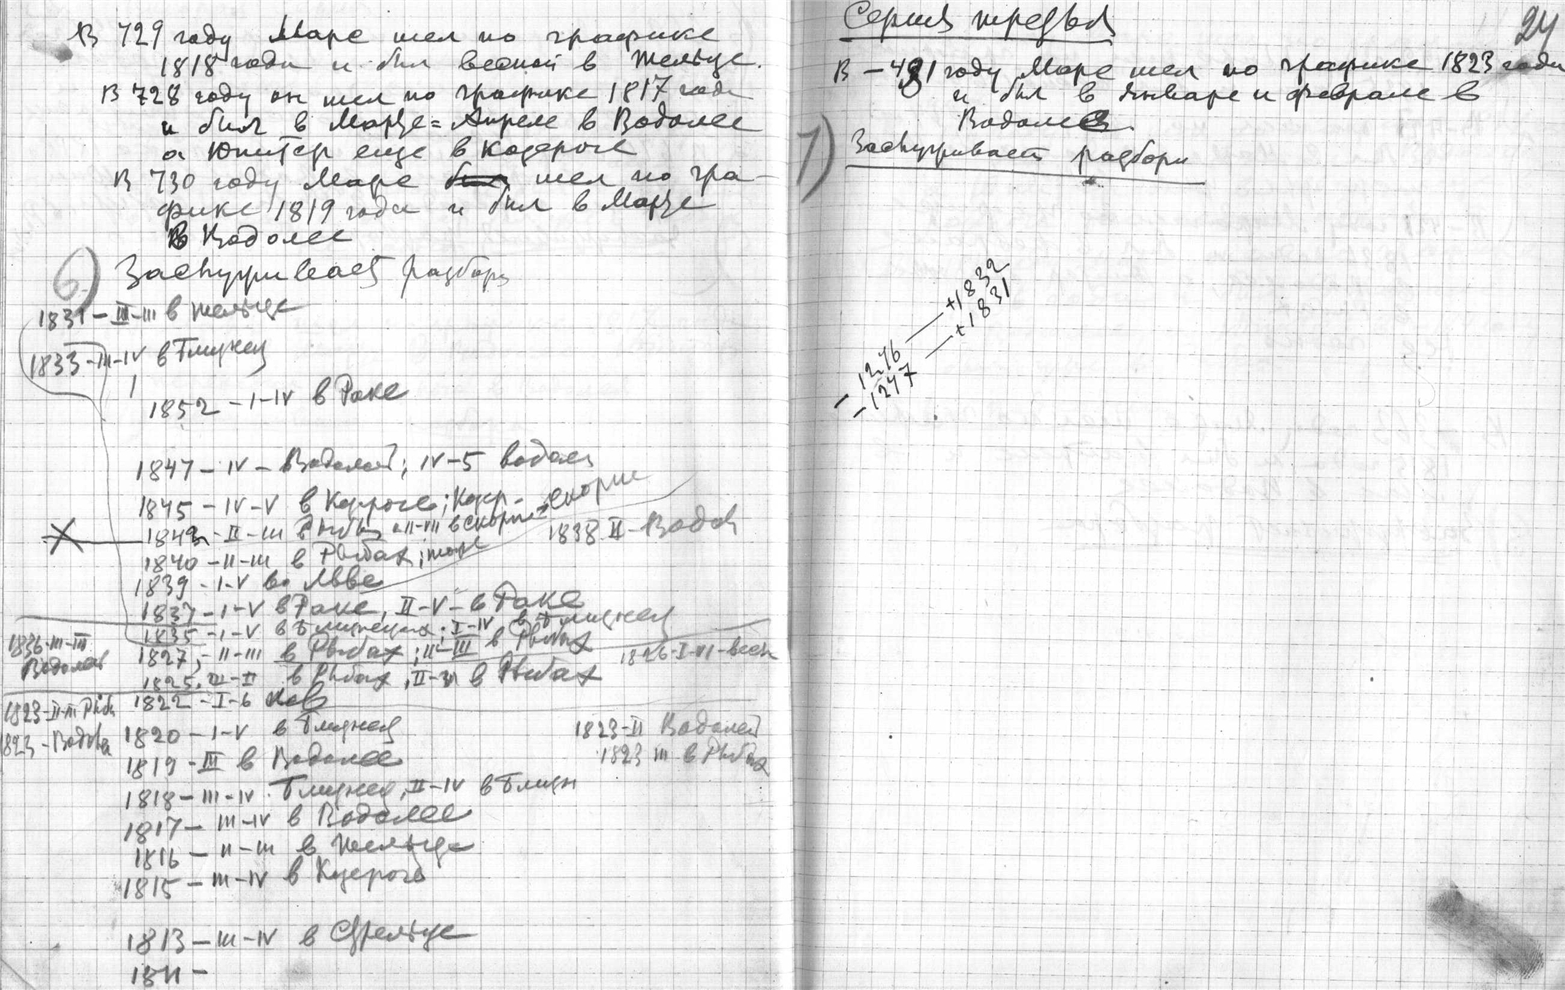 В 729 году Марс шел по графике
1818 года и был весной в Тельце.
В 728 году он шел по графике 1817 года
и был в Марте = Апреле в Водолее
а Юпитер еще в Козероге
В 730 году Марс шел по гра-
фике 1819 года и был в Марте
в Водолее
6) Заслуживает разбора
1831 – III-III в Тельце
1833 – III-IV в Близнец
1852 – I-IV в Раке
1847 – IV – Водолей; IV-5 водолей
1845 – IV-V в Козероге; Козер-
1843 – II-III Рыбы
1838 II – Водол
1840 – II-III в Рыбах;
1839 – I-V во Льве
1837 – I-V в Раке, II-V – в Раке
1835 – I-V в Близнецах; I-IV в Близнец
1836-III-III
Водолей
1827, – II-III в Рыбах; II-III в Рыбах
1826-I-VI-весы
1825, III-II в Рыбах, II-III в Рыбах
1822 – I-6 Лев
1823-II-III Рыбы
1823 – Водолей
1820 – I-V в Близнец
1823-II Водолей
1823 III в Рыбах
1819 – III в Водолее
1818 – III-IV. Близнец, II-IV в Близн
1817 – III-IV в Водолее
1816 – II-III в Тельце
1815 – III-IV в Козероге
1813 – III-IV в Стрельце
1811 –
24
Серия третья
В – 481 году Марс шел по графике 1823 года
и был в Январе и феврале в
Водолее.
7) Заслуживает разбора
– 1246 — +1832
– 1247 — +1831